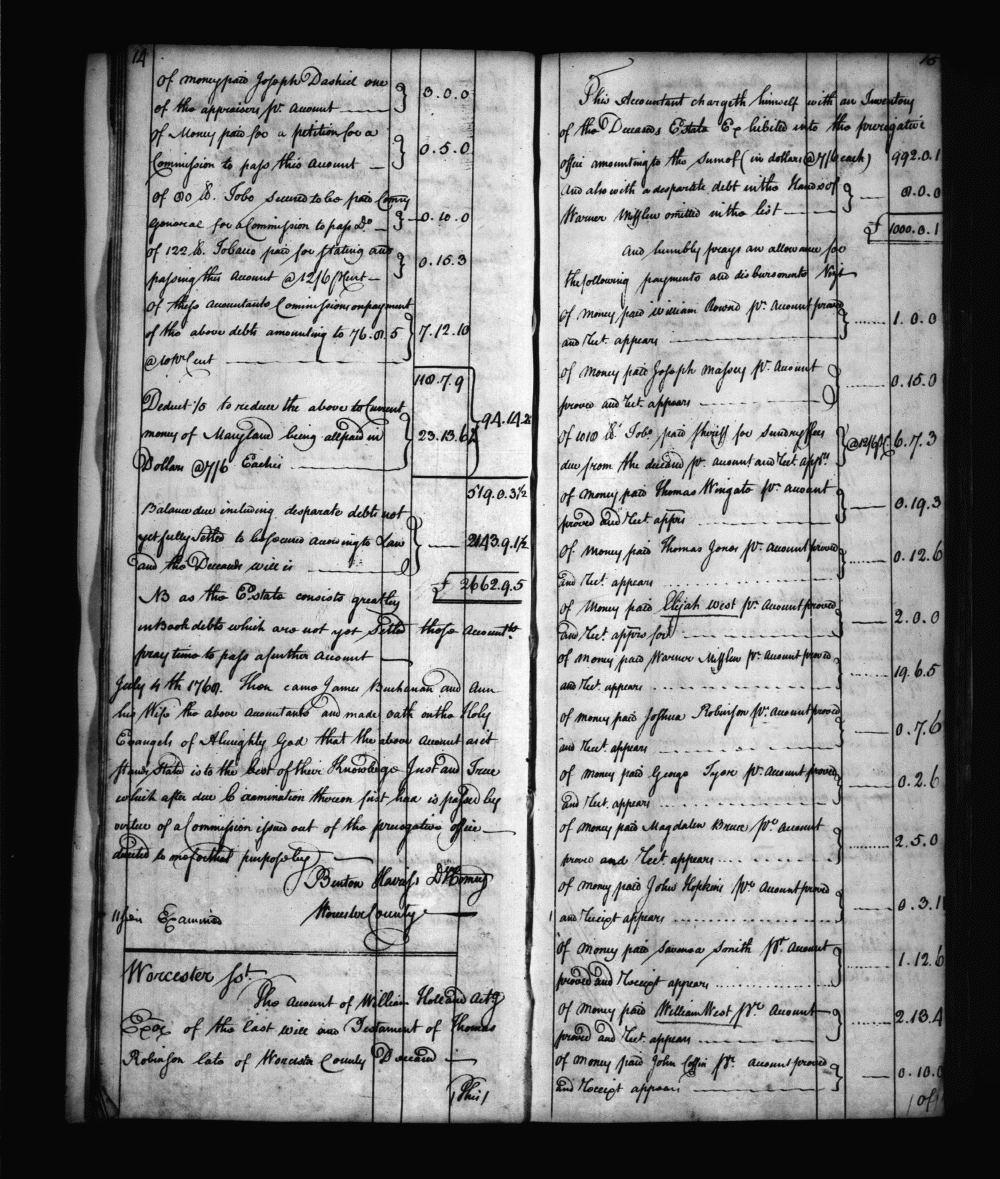 14
of money paid Joseph Dashiel one
of the appraisers pr. account
3.0.0
of Money paid for a petition for a
Commission to pass this Account
0.5.0
of 80 lb. Tobo. secured to be paid Comry
General for a Commission to pass Do.
0.10.0
of 122 lb. Tobacco paid for stating and
passing this Account @ 12/6 pr Hunt
0.15.3
of these accountants Commissions on payment
of the above debts amounting to 76.8.5
@ 10 pr Cent
7.12.10
118.7.9
Deduct 1/5 to reduce the above to Current
money of Maryland being all paid in
Dollars @ 7/6 Each is
23.13.6½
94.14.2
519.0.3½
Balance due including desparate debts not
yet fully Settled to be secured according to Law
and the Deceaseds will is
2143.9.1½
£ 2662.9.5
NB as the Estate consists greatley
in Book debts which are not yet Settled those Accountts.
pray time to pass a further account
July 4th 1768. Then came James Buchanan and Ann
his Wife the above accountants and made oath on the Holy
Evangels of Almighty God that the above Account as it
stands Stated is to the best of their Knowledge Just and True
which after due Examination thereon first had is passed by
virtue of a Commission issued out of the prerogative office
directed to me for that purpose by
Benton Harris Dy Comry
Worcester County
Examined
Worcester sst.
The Account of William Holland Actg
Exor of the last will and Testament of Thomas
Robinson late of Worcester County Deceased
This
15
This Accountant chargeth himself with an Inventory
of the Deceaseds Estate Exhibited into the prerogative
office amounting to the sum of (in dollars @ 7/6 each)
992.0.1
And also with a desparate debt in the Hands of
Warner Mifflin omitted in the list
8.0.0
£ 1000.0.1
And humbly prays an allowance for
the following payments and disbursements Vizt
of money paid William Rownd pr. Account proved
and Rect. appears
1.0.0
of money paid Joseph Massey pr. Account
proved and Rect. appears
0.15.0
of 1018 lbs Tobo. paid Sheriff for Sundry fees
due from the deceased pr. account and Rect. apprs
@ 12/6 pr Ct.
6.7.3
of money paid Thomas Wingate pr. account
proved and Rect. apprs
0.19.3
of money paid Thomas Jones pr. Account proved
and Rect. appears
0.12.6
of Money paid Elijah West pr. Account proved
and Rect. apprs for
2.0.0
of money paid Warner Mifflin pr. Account proved
and Rect. appears
19.6.5
of money paid Joshua Robinson pr. Account proved
and Rect. appears
0.7.6
of money paid George Tyore pr. Account proved
and Rect. appears
0.2.6
of money paid Magdalen Bruce pr. Account
proved and Rect. appears
2.5.0
of money paid John Hopkins pr. Account proved
and Receipt appears
0.3.1
of Money paid Savanoa Smith pr. Account
proved and Receipt appears
1.12.6
of Money paid William West pr. Account
proved and Rect. appears
2.13.4
of Money paid John Coffin pr. Account proved
and Receipt appears
0.10.0
of